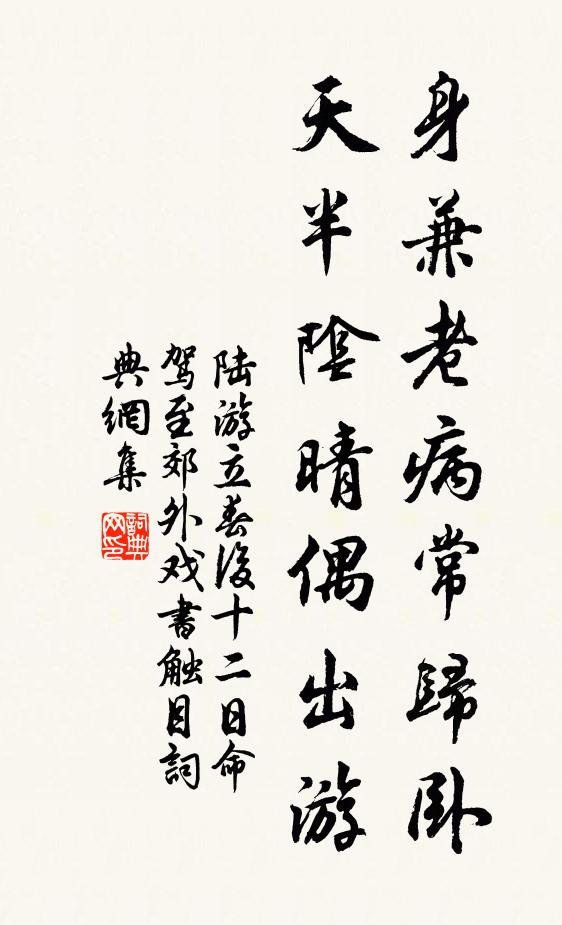 身兼老病常歸卧
天半陰晴偶出游
陆游立春後十二日命
駕至郊外戏書触目詞
典網集
詞典
网印